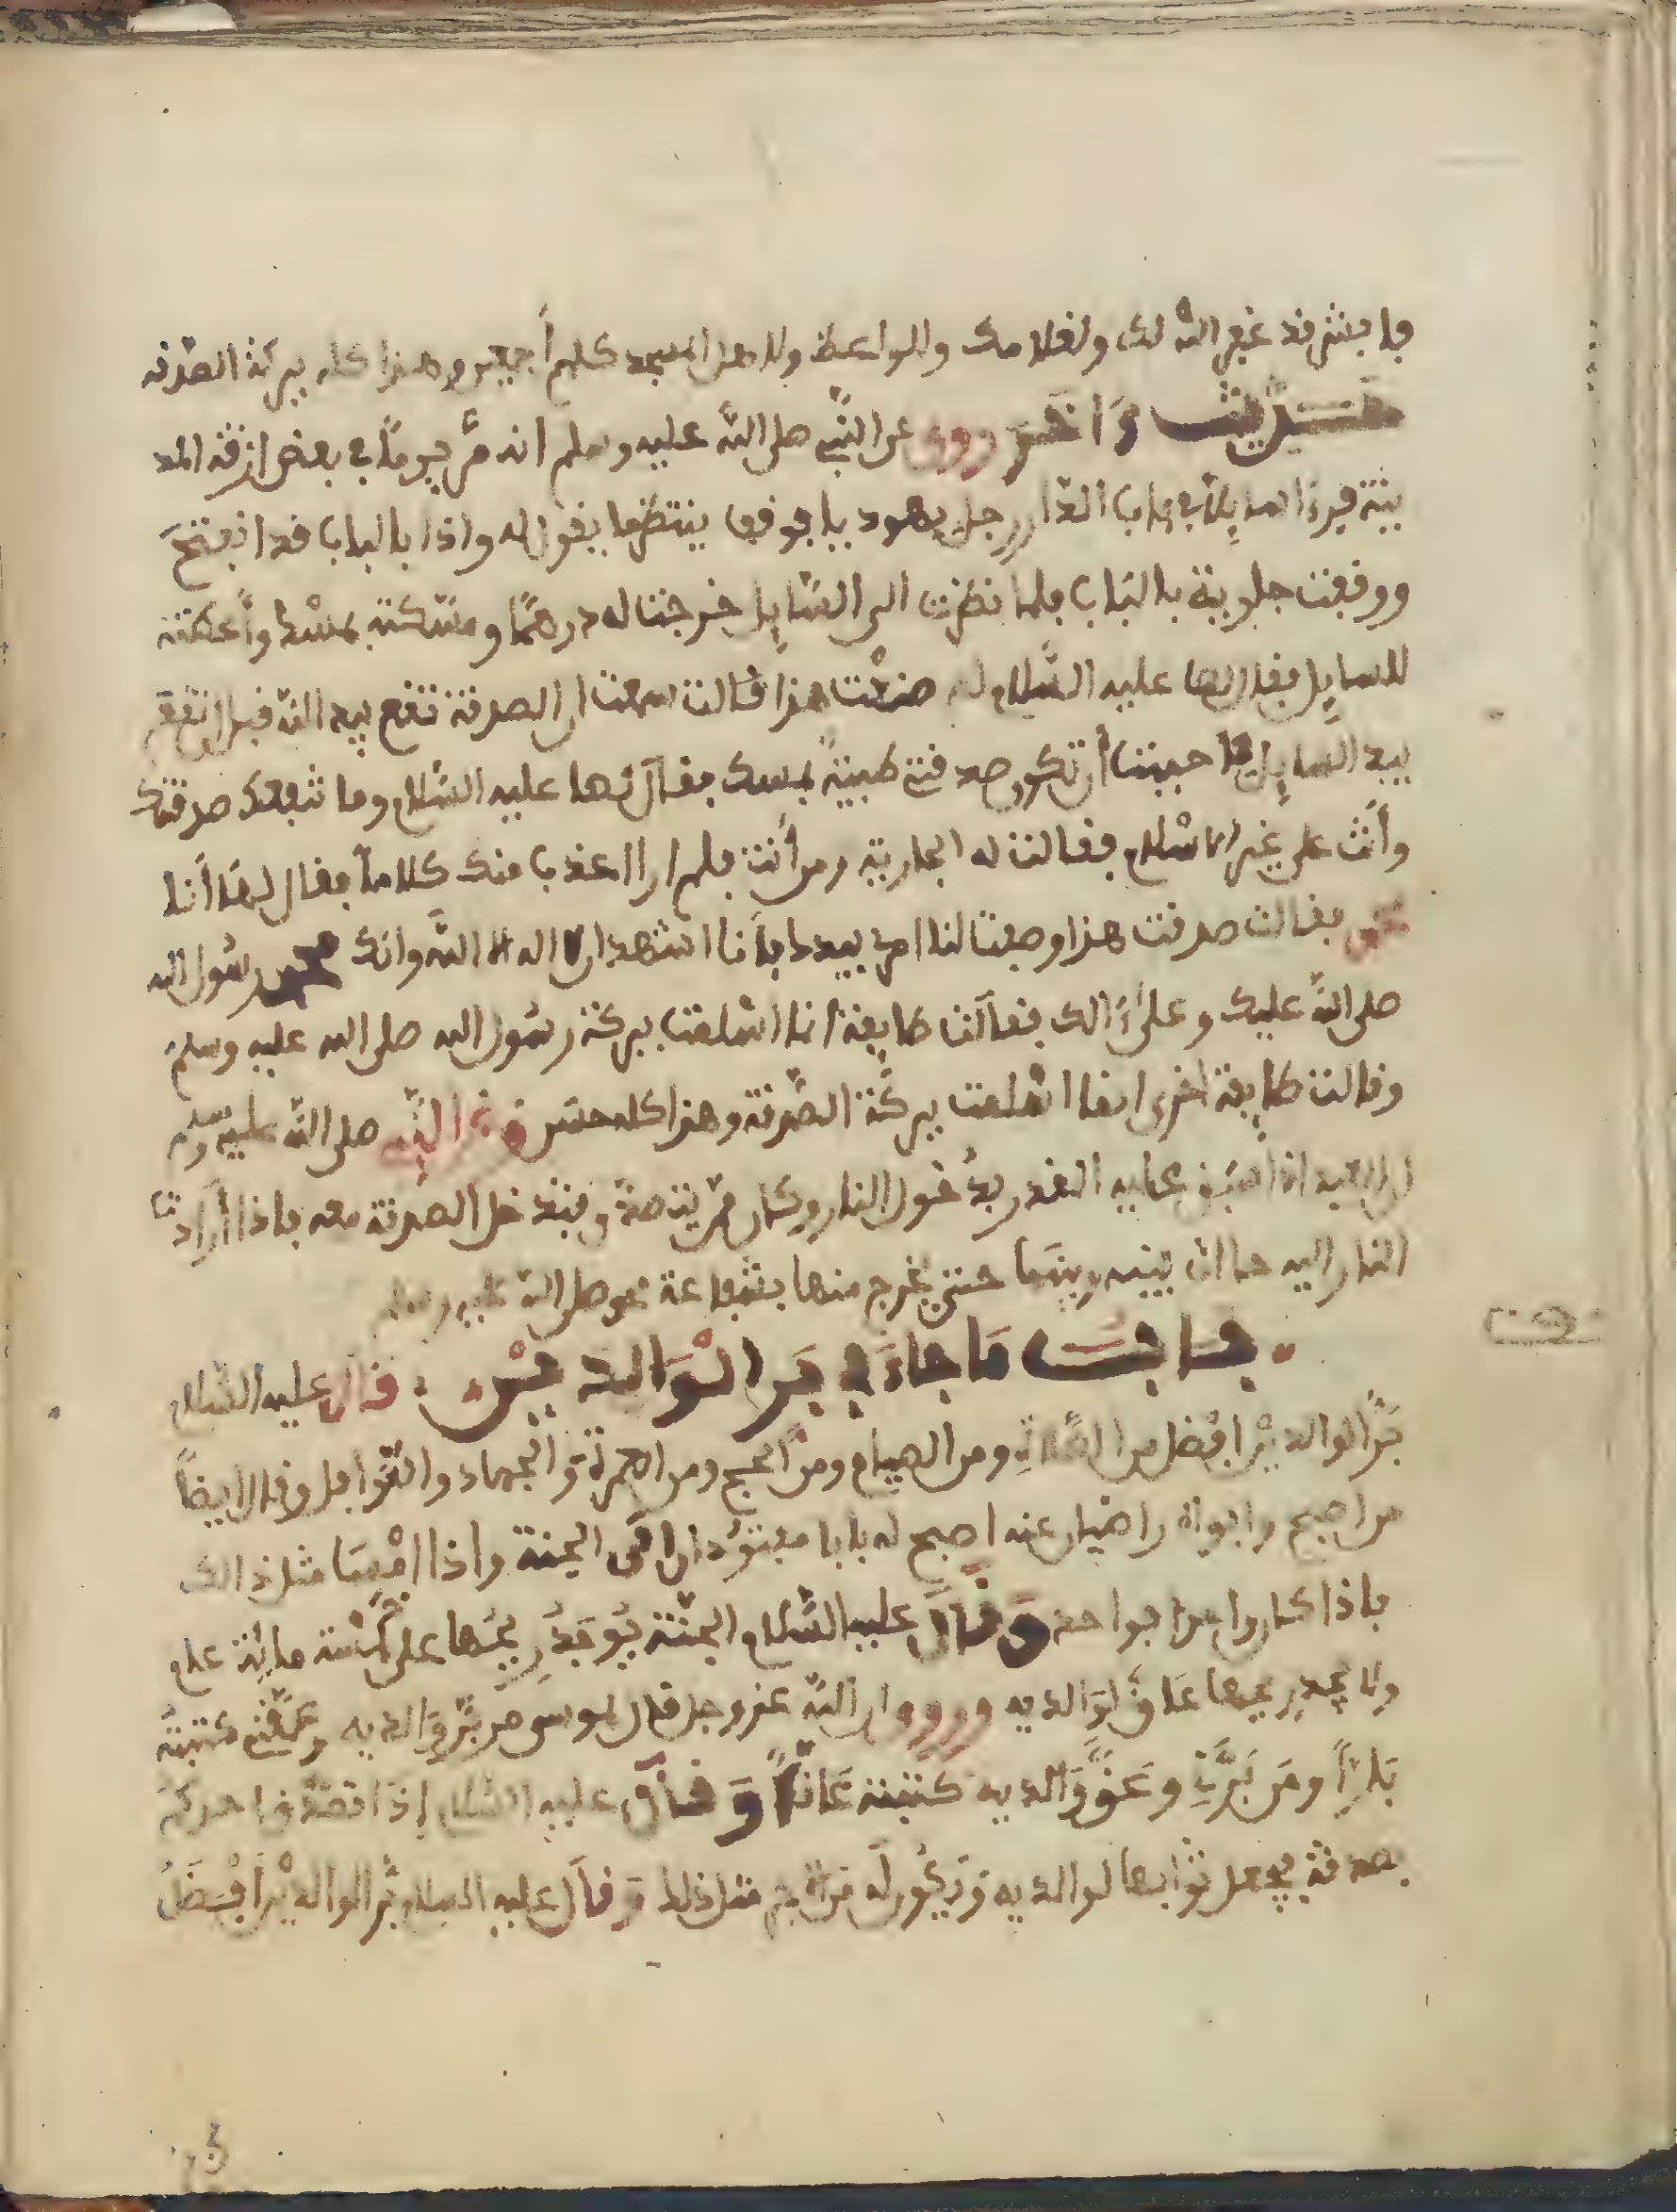 فابشر فقد غفر الله لك ولغلامك وللواعظ ولاهل المسجد كلهم أجمعين وهذا كله ببركة الصدقة
حديث واخر روي عن النبي صلى الله عليه وسلم انه مر يوما في بعض ازقة المد
ينة فرءا سايلا في باب الدار رجل يهودي فوقف ينتظر ما يقول له واذا بالباب قد انفتح
ووقفت جارية بالباب فلما نظرت الى السايل خرجت له درهما ومسكته بمسك وأعطته
للسايل فقال لها عليه السلام لم صنعت هذا قالت سمعت ان الصدقة تقع بيد الله قبل ان تقع
بيد السايل فاحببت أن تكون صدقتي طيبة بمسك فقال لها عليه السلام وما تنفعك صدقتك
وأنت على غير الاسلام فقالت له الجارية ومن أنت فلم ار اعذب منك كلاما فقال لها أنا
محمد فقالت صدقت هذا وصفت لنا امد يدك فأنا اشهد ان لا اله الا الله وانك محمد رسول الله
صلى الله عليك وعلى ءالك فقالت طايفة انما اسلمت ببركة رسول الله صلى الله عليه وسلم
وقالت طايفة اخرى انما اسلمت ببركة الصدقة وهذا كله حسن وعن النبي صلى الله عليه وسلم
ان العبد اذا سبق عليه القدر بدخول النار وكان من يتصدق فتدخل الصدقة معه فاذا أرادت
النار اليه حالت بينه وبينها حتى يخرج منها بشفاعة محمد صلى الله عليه وسلم
باب ما جاء في بر الوالدين قال عليه السلام
بر الوالدين افضل من الصلاة ومن الصيام ومن الحج ومن العمرة والجهاد والنوافل وقال ايضا
من اصبح وابواه راضيان عنه اصبح له بابا مفتوحان الى الجنة واذا امسا مثل ذالك
فاذا كان واحدا فواحد وقال عليه السلام الجنة يوجد ريحها على خمسة مائة عام
ولا يجد ريحها عاق لوالديه وروي ان الله عز وجل قال لموسى من بر والديه وعقني كتبته
بارا ومن برني وعق والديه كتبته عاقا وقال عليه السلام إذا تصدق احدكم
بصدقة يجعل ثوابها لوالديه ويكون له من اجرهم مثل ذلك وقال عليه السلام بر الوالدين أفضل